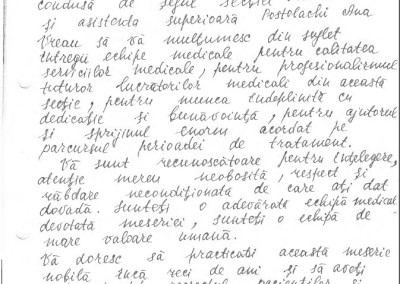 condusă de șeful secției
și asistenta superioară Postolachi Ana
Vreau să vă mulțumesc din suflet
întregii echipe medicale pentru calitatea
serviciilor medicale, pentru profesionalismul
tuturor lucrătorilor medicali din această
secție, pentru munca îndeplinită cu
dedicație și bunăvoință, pentru ajutorul
și sprijinul enorm acordat pe
parcursul perioadei de tratament.
Vă sunt recunoscătoare pentru înțelegere,
atenție mereu neobosită, respect și
răbdare necondiționată de care ați dat
dovadă. Sunteți o adevărată echipă medicală
devotată meseriei, sunteți o echipă de
mare valoare umană.
Vă doresc să practicați această meserie
nobilă încă zeci de ani și să aveți
respectul pacienților și